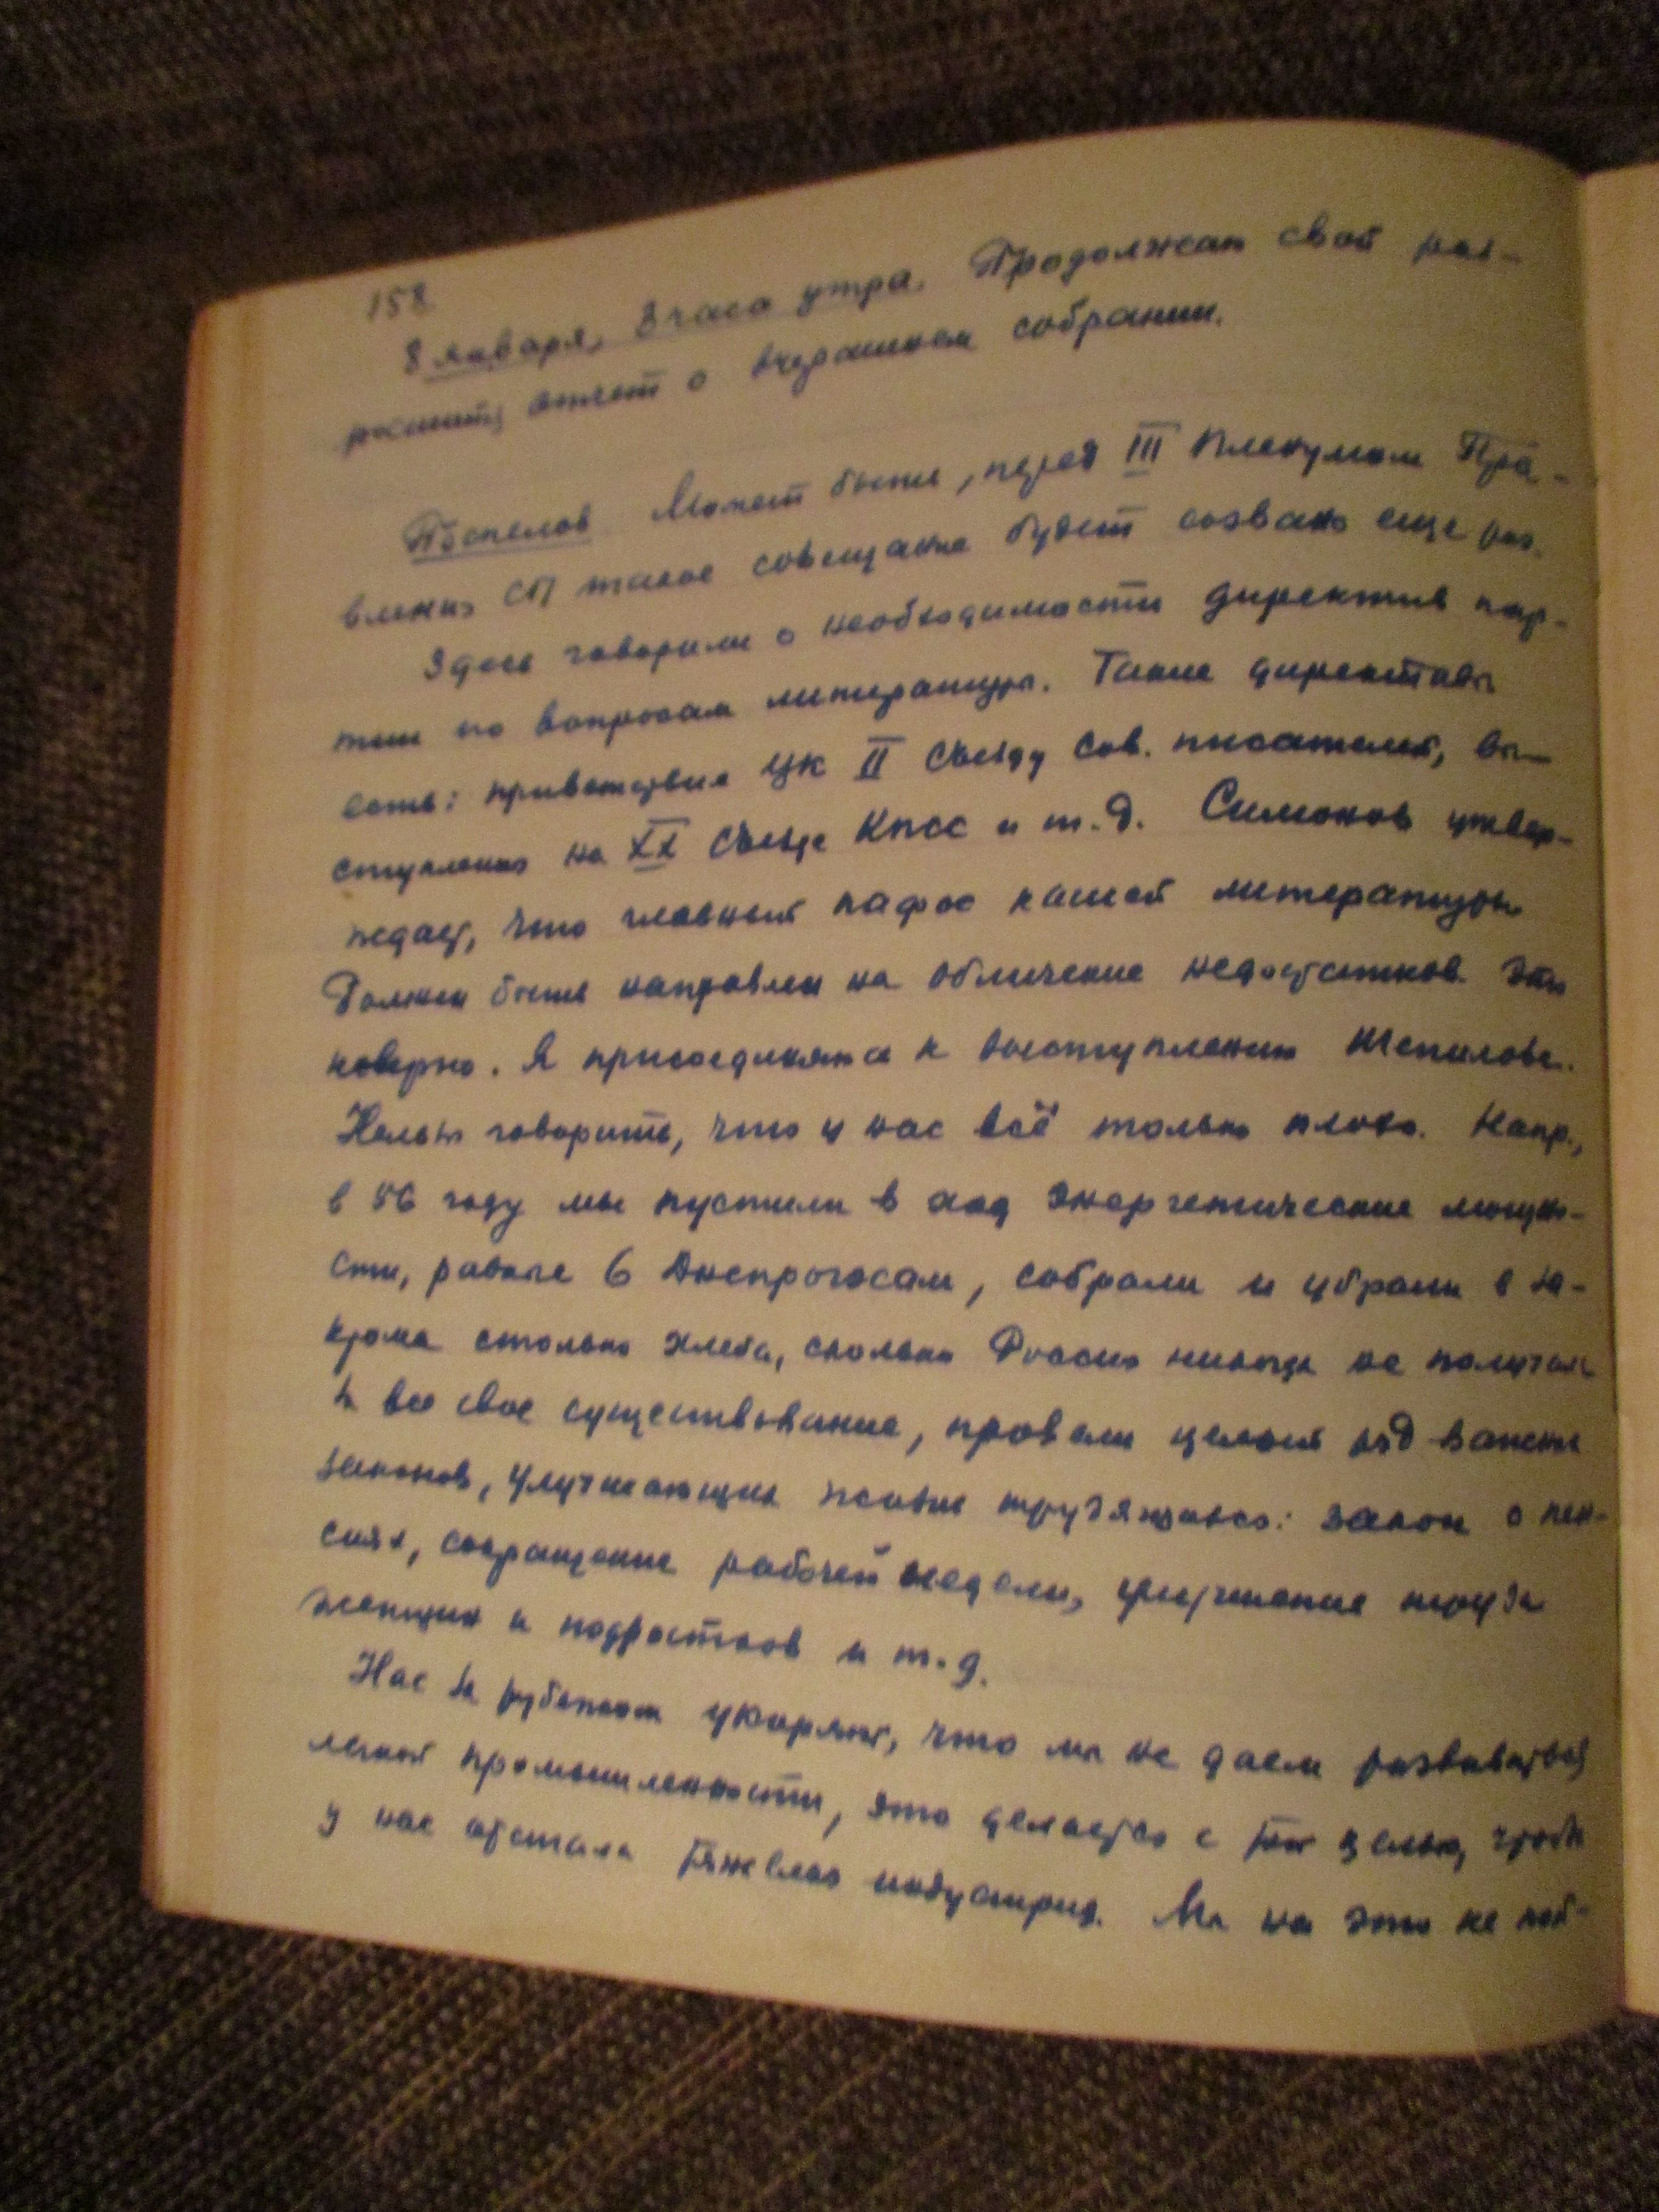 158
8 января, 3 часа утра. Продолжаю свой рас-
ширенный отчет о вчерашнем собрании.
Поспелов Может быть, перед III Пленумом Пра-
вления СП такое совещание будет созвано еще раз.
Здесь говорили о необходимости директив пар-
тии по вопросам литературы. Такие директивы
есть: приветствие ЦК II Съезду Сов. писателей, вы-
ступления на XX Съезде КПСС и т.д. Симонов утвер-
ждает, что главный пафос нашей литературы
Должен быть направлен на обличение недостатков. Это
неверно. Я присоединяюсь к выступлению Шепилова.
Нельзя говорить, что у нас всё только плохо. Напр.,
в 56 году мы пустили в ход энергетические мощно-
сти, равные 6 Днепрогэсам, собрали и убрали в за-
крома столько хлеба, сколько Россия никогда не получала
за все свое существование, провели целый ряд важных
законов, улучшающих жизнь трудящихся: закон о пен-
сиях, сокращение рабочей недели, улучшение труда
женщин и подростков и т.д.
Нас за рубежом укоряют, что мы не даем развиваться
легкой промышленности, это делается с той целью, чтобы
у нас отстала тяжелая индустрия. Мы на это не пой-